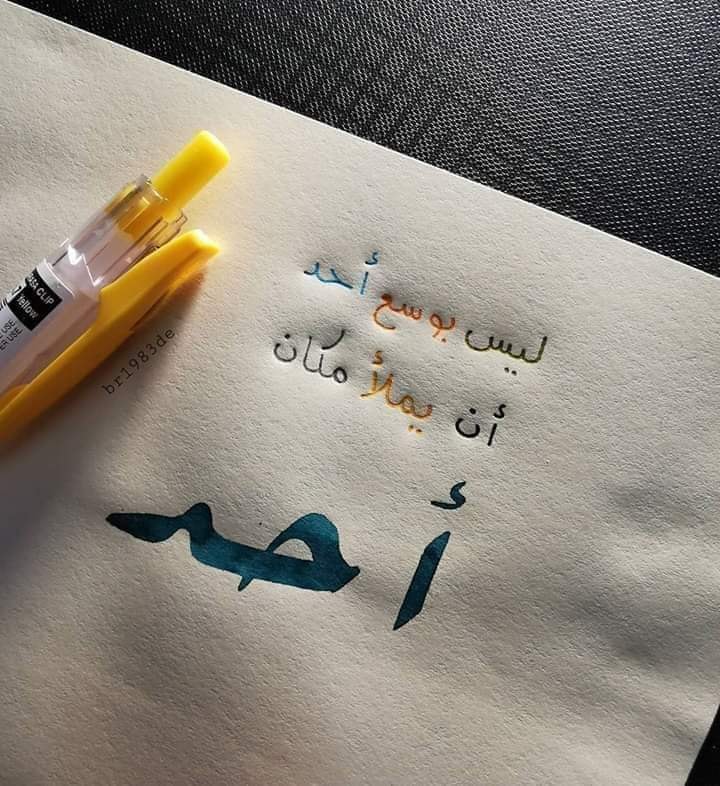 ليس بوسع أحد
أن يملأ مكان
أحد
br1983de
CLIP
Yellow